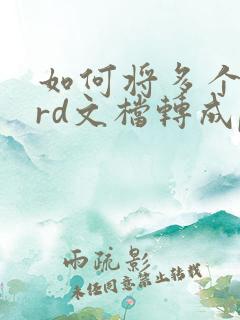 如何将多个
rd文檔轉成
雨疏影
未经同意禁止转载